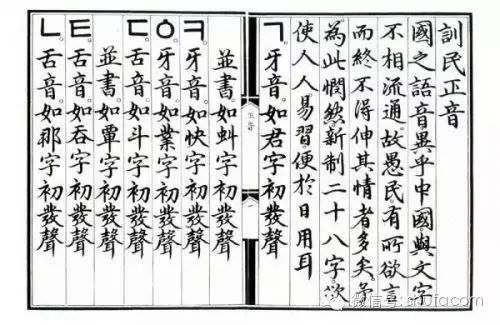 訓民正音
國之語音異乎中國與文字
不相流通。故愚民有所欲言
而終不得伸其情者多矣。予
為此憫然新制二十八字。欲
使人人易習。便於日用耳
ㄱ。牙音。如君字初發聲
正音
一
並書。如虯字初發聲
ㅋ。牙音。如快字初發聲
ㆁ。牙音。如業字初發聲
ㄷ。舌音。如斗字初發聲
並書。如覃字初發聲
ㅌ。舌音。如呑字初發聲
ㄴ。舌音。如那字初發聲
微信号: shufacom